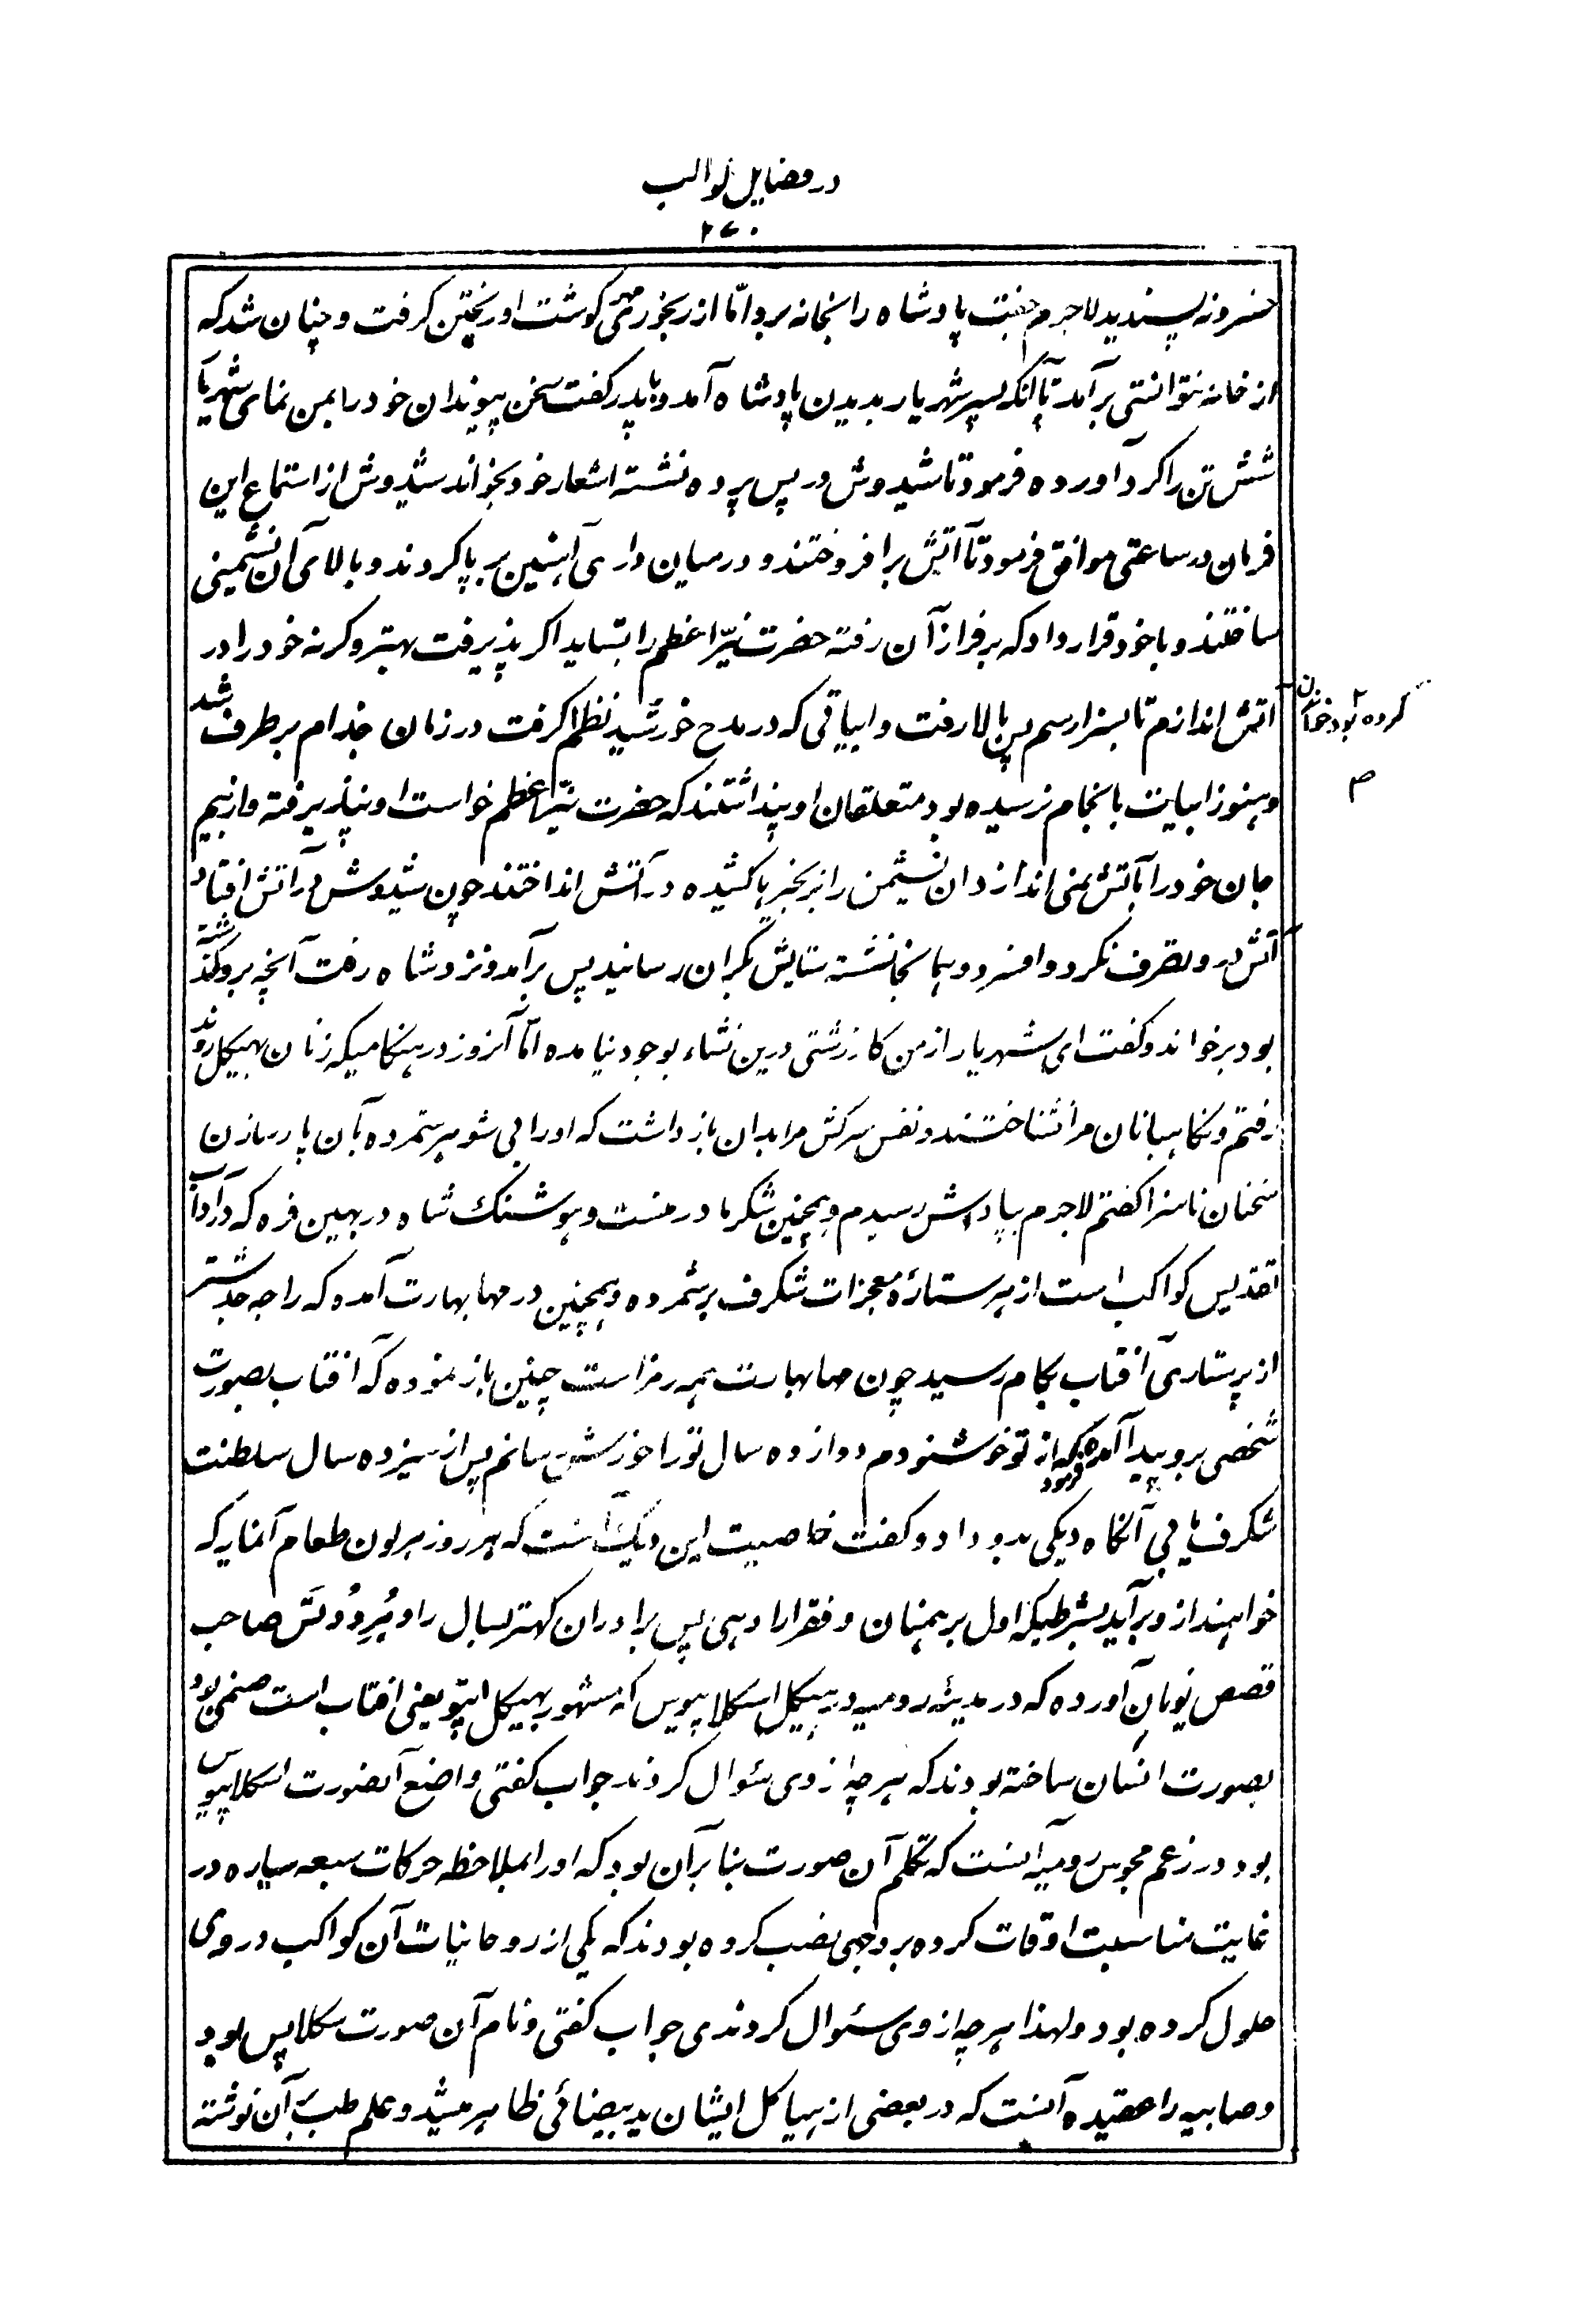 در فضایل کواکب
۲۷۰
خسرو نه پسندید لاجرم جفت پادشاه را بخانه برد امّا از رنجوری گوشت او ریختن گرفت و چنان شد که
از خانه نتوانستی برآمد تا آنکه پسر شهریار بدیدن پادشاه آمد و با پدر گفت سخن پیوندان خود را بمن نمای شهریار
شش تن را گرد آورده فرمود تا شیدوش در پس پرده نشسته اشعار خود بخواند شیدوش از استماع این
فرمان در ساعتی موافق فرمود تا آتش برافروختند و در میان داری آهنین برپا کردند و بالای آن نشیمنی
ساختند و با خود قرار داد که بر فراز آن رفته حضرت نیّر اعظم را بستاید اگر پذیرفت بهتر وگرنه خود را در
آتش اندازم تا بسزا رسم پس ببالا رفت و ابیاتی که در مدح خورشید نظم کرده بود خواندن گرفت در زمان جذام برطرف شد
و هنوز ابیات بانجام نرسیده بود متعلقان او پنداشتند که حضرت نیّر اعظم خواست او نپذیرفته و از بیم
جان خود را بآتش نمی اندازد آن نشیمن را بزنجیرها کشیده در آتش انداختند چون شیدوش در آتش افتاد
آتش درو تصرف نکرد و افسرد و همانجا نشسته ستایش بکران رسانید پس برآمد و نزد شاه رفت آنچه برو گذشته
بود برخواند و گفت ای شهریار از من کار زشتی درین نشاء بوجود نیامده امّا آنروز در هنگامیکه زنان بهیکل روند
رفتم و نگاهبانان مرا نشناختند و نفس سرکش مرا بدان بازداشت که او را بی شوهر شمرده بآن پارسا زن
سخنان ناسزا گفتم لاجرم بپاداش رسیدم و همچنین شکر مادر منست و هوشنگ شاه در بهین فره که در آداب
تقدیس کواکب است از هر ستاره معجزات شگرف برشمرده و همچنین در مهابهارت آمده که راجه جدشتر
از پرستاری آفتاب بکام رسید چون مهابهارت همه رمز است چنین باز نموده که آفتاب بصورت
شخصی برو پیدا آمده فرمود که از تو خوشنودم دوازده سال تو را خورش رسانم پس از سیزده سال سلطنت
شگرف یابی آنگاه دیگی بدو داد و گفت خاصیت این دیگ آنست که هر روز هر لون طعام آنمایه که
خواهند ازو برآید بشرطیکه اول برهمنان و فقرا را دهی پس برادران کهتر بسال را صاحب
قصص یونان آورده که در مدینه رومیه در هیکل اسکلاپیوس که مشهور بهیکل اپتو یعنی آفتاب است صنمی بود
بصورت انسان ساخته بودند که هر چه از وی سئوال کردند جواب گفتی و واضع آنصورت اسکلاپیوس
بود در زعم مجوس رومیه آنست که تکلم آن صورت بنا بر آن بود که او را بملاحظه حرکات سبعه سیاره در
غایت مناسبت اوقات کرده بر وجهی نصب کرده بودند که یکی از روحانیات آن کواکب در وی
حلول کرده بود و لهذا هر چه از وی سئوال کردندی جواب گفتی و نام آن صورت سکلاپس بود
و صابیه را عقیده آنست که در بعضی از هیاکل ایشان ید بیضائی ظاهر میشد و علم طب بر آن نوشته